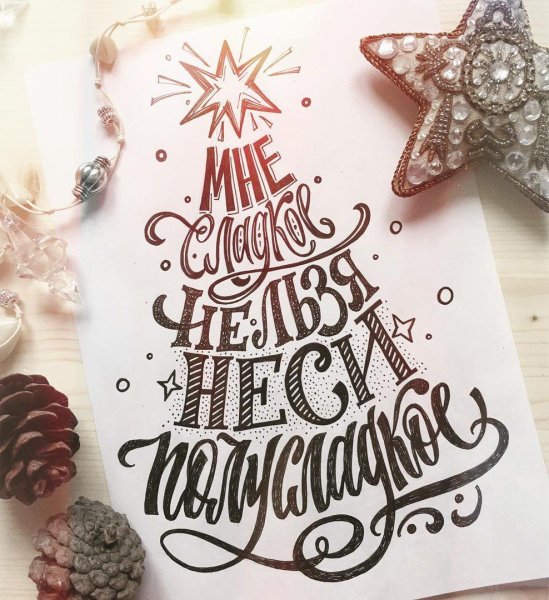 МНЕ
Сладкое
НЕЛЬЗЯ
НЕСИ
полусладкое